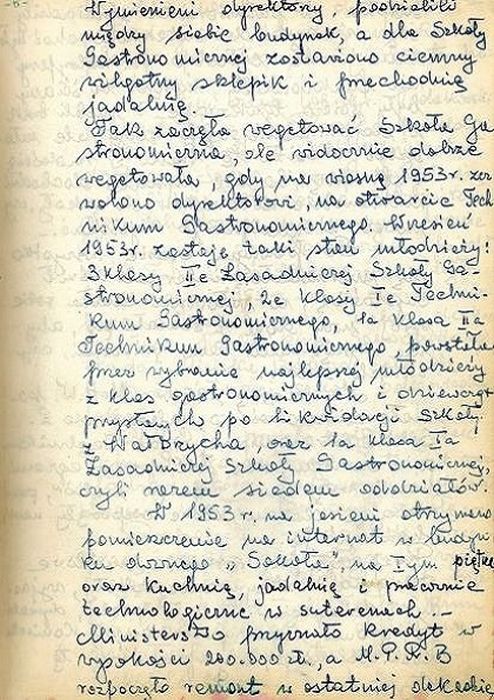 Wymienieni dyrektorzy, podzielili
między siebie budynek, a dla Szkoły
Gastronomicznej zostawiono ciemny
wilgotny sklepik i przechodnią
jadalnię.
Tak zaczęła wegetować Szkoła Ga
stronomiczna, ale widocznie dobrze
wegetowała, gdy na wiosnę 1953r. zez
wolono dyrektorowi, na otwarcie Tech
nikum Gastronomicznego. Wrzesień
1953r. zastaje taki stan młodzieży:
3 klasy IIe Zasadniczej Szkoły Ga-
stronomicznej, 2e klasy Ie Techni-
kum Gastronomicznego, 1a klasa IIa
Technikum Gastronomicznego powstała
przez wybranie najlepszej młodzieży
z klas gastronomicznych i dziewcząt
przysłanych po likwidacji Szkoły
z Wałbrzycha, oraz 1a klasa Ia
Zasadniczej Szkoły Gastronomicznej,
czyli razem siedem oddziałów.
W 1953 r. na jesieni otrzymano
pomieszczenie na internat w budyn
ku dawnego "Sokoła", na Iym piętrze
oraz kuchnię, jadalnię i pracownie
technologiczne w suterenach. -
Ministerstwo przyznało kredyt w
wysokości 200.000 zł., a M.P.R.B
rozpoczęło remont w ostatniej dekadzie